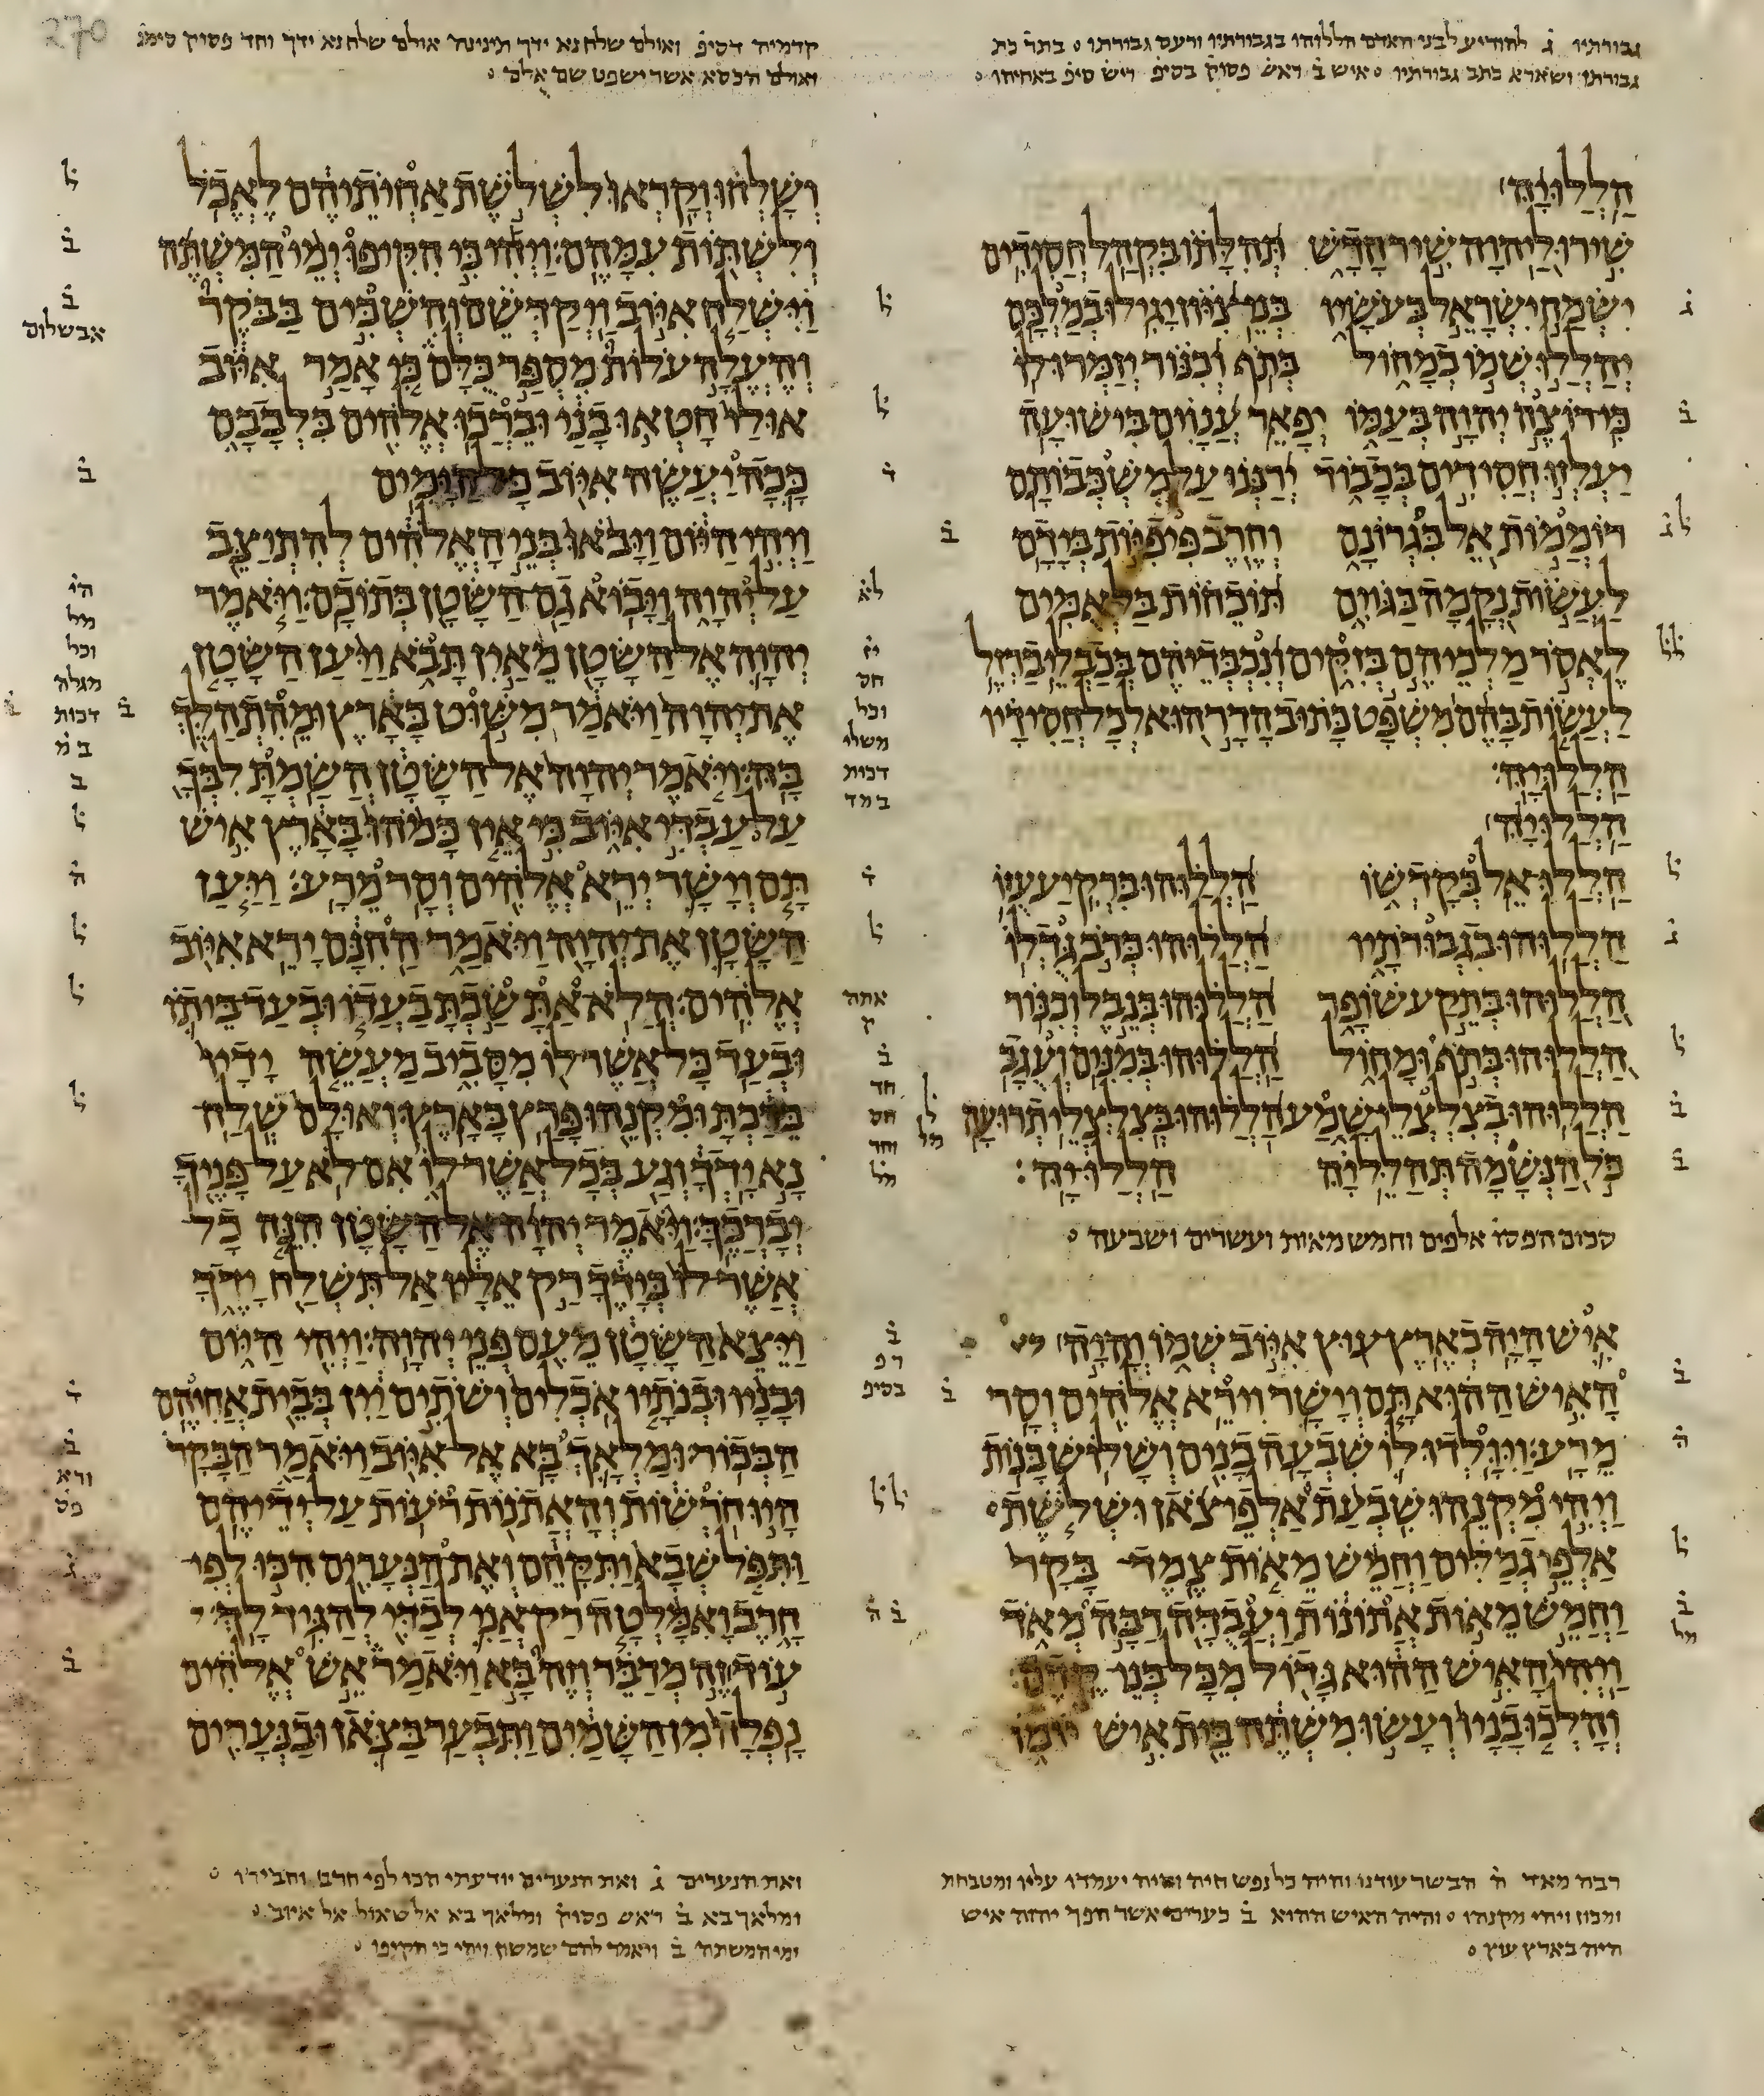 גבורתיו ג̇ להודיע לבני האדם הללוהו בגבורתיו ורעם גבורתו ○ בתר̇ כת
גבורתו ושארא כתב גבורתיו ○ איש ב̇ ראש פסוק̇ בסיפ̇ ריש סיפ̇ באחיהו ○
קדמיה דסיפ̇ ואולם שלח נא ידך תינינה אולם שלח נא ידך וחד פסוק סימנ̇
ואולם הכסא אשר ישפט שם אלם ○
הללויה
שירו ליהוה שיר חדש תהלתו בקהל חסידים
ישמח ישראל בעשיו בני ציון יגילו במלכם
יהללו שמו במחול בתף וכנור יזמרו לו
כי רוצה יהוה בעמו יפאר ענוים בישועה
יעלזו חסידים בכבוד ירננו על משכבותם
רוממות אל בגרונם וחרב פיפיות בידם
לעשות נקמה בגוים תוכחות בלאמים
לאסר מלכיהם בזקים ונכבדיהם בכבלי ברזל
לעשות בהם משפט כתוב הדר הוא לכל חסידיו
הללויה׃
הללויה
הללו אל בקדשו הללוהו ברקיע עזו
הללוהו בגבורתיו הללוהו כרב גדלו
הללוהו בתקע שופר הללוהו בנבל וכנור
הללוהו בתף ומחול הללוהו במנים ועגב
הללוהו בצלצלי שמע הללוהו בצלצלי תרועה
כל הנשמה תהלל יה הללויה׃
סכום הפסו̇ אלפים וחמש מאות ועשרים ושבעה ○
איש היה בארץ עוץ איוב שמו והיה
האיש ההוא תם וישר וירא אלהים וסר
מרע׃ ויולדו לו שבעה בנים ושלוש בנות
ויהי מקנהו שבעת אלפי צאן ושלשת
אלפי גמלים וחמש מאות צמד בקר
וחמש מאות אתונות ועבדה רבה מאד
ויהי האיש ההוא גדול מכל בני קדם׃
והלכו בניו ועשו משתה בית איש יומו
ושלחו וקראו לשלשת אחיותיהם לאכל
ולשתות עמהם׃ ויהי כי הקיפו ימי המשתה
וישלח איוב ויקדשם והשכים בבקר
והעלה עלות מספר כלם כי אמר איוב
אולי חטאו בני וברכו אלהים בלבבם
ככה יעשה איוב כל הימים
ויהי היום ויבאו בני האלהים להתיצב
על יהוה ויבוא גם השטן בתוכם׃ ויאמר
יהוה אל השטן מאין תבא ויען השטן
את יהוה ויאמר משוט בארץ ומהתהלך
בה׃ ויאמר יהוה אל השטן השמת לבך
על עבדי איוב כי אין כמהו בארץ איש
תם וישר ירא אלהים וסר מרע׃ ויען
השטן את יהוה ויאמר החנם ירא איוב
אלהים׃ הלא את שכת בעדו ובעד ביתו
ובעד כל אשר לו מסביב מעשה ידיו
ברכת ומקנהו פרץ בארץ ואולם שלח
נא ידך וגע בכל אשר לו אם לא על פניך
יברכך׃ ויאמר יהוה אל השטן הנה כל
אשר לו בידך רק אליו אל תשלח ידך
ויצא השטן מעם פני יהוה׃ ויהי היום
ובניו ובנתיו אכלים ושתים יין בבית אחיהם
הבכור׃ ומלאך בא אל איוב ויאמר הבקר
היו חרשות והאתנות רעות על ידיהם
ותפל שבא ותקחם ואת הנערים הכו לפי
חרב ואמלטה רק אני לבדי להגיד לך׃
עוד זה מדבר וזה בא ויאמר אש אלהים
נפלה מן השמים ותבער בצאן ובנערים
רבה מאד ה̇ הבשר עודנו והיה כל נפש חיה והיה יעמדו עליו ומטבחת
ומכוז ויהי מקנהו ○ והיה האיש ההוא ב̇ כערים אשר הפך יהוה איש
היה בארץ עוץ ○
ואת הנערים ג̇ ואת הנערים יודעתי הכו לפי חרב וחבירו ○
ומלאך בא ב̇ ראש פסוק̇ ומלאך בא אל שאול אל איוב ○
ימי המשתה ב̇ ויאמר להם שמשון ויהי כי הקיפו ○
270